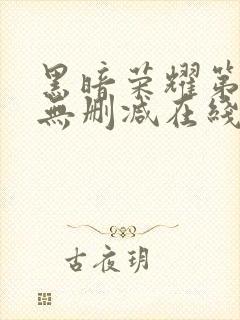 黑暗荣耀第
無删减在綫
古夜玥